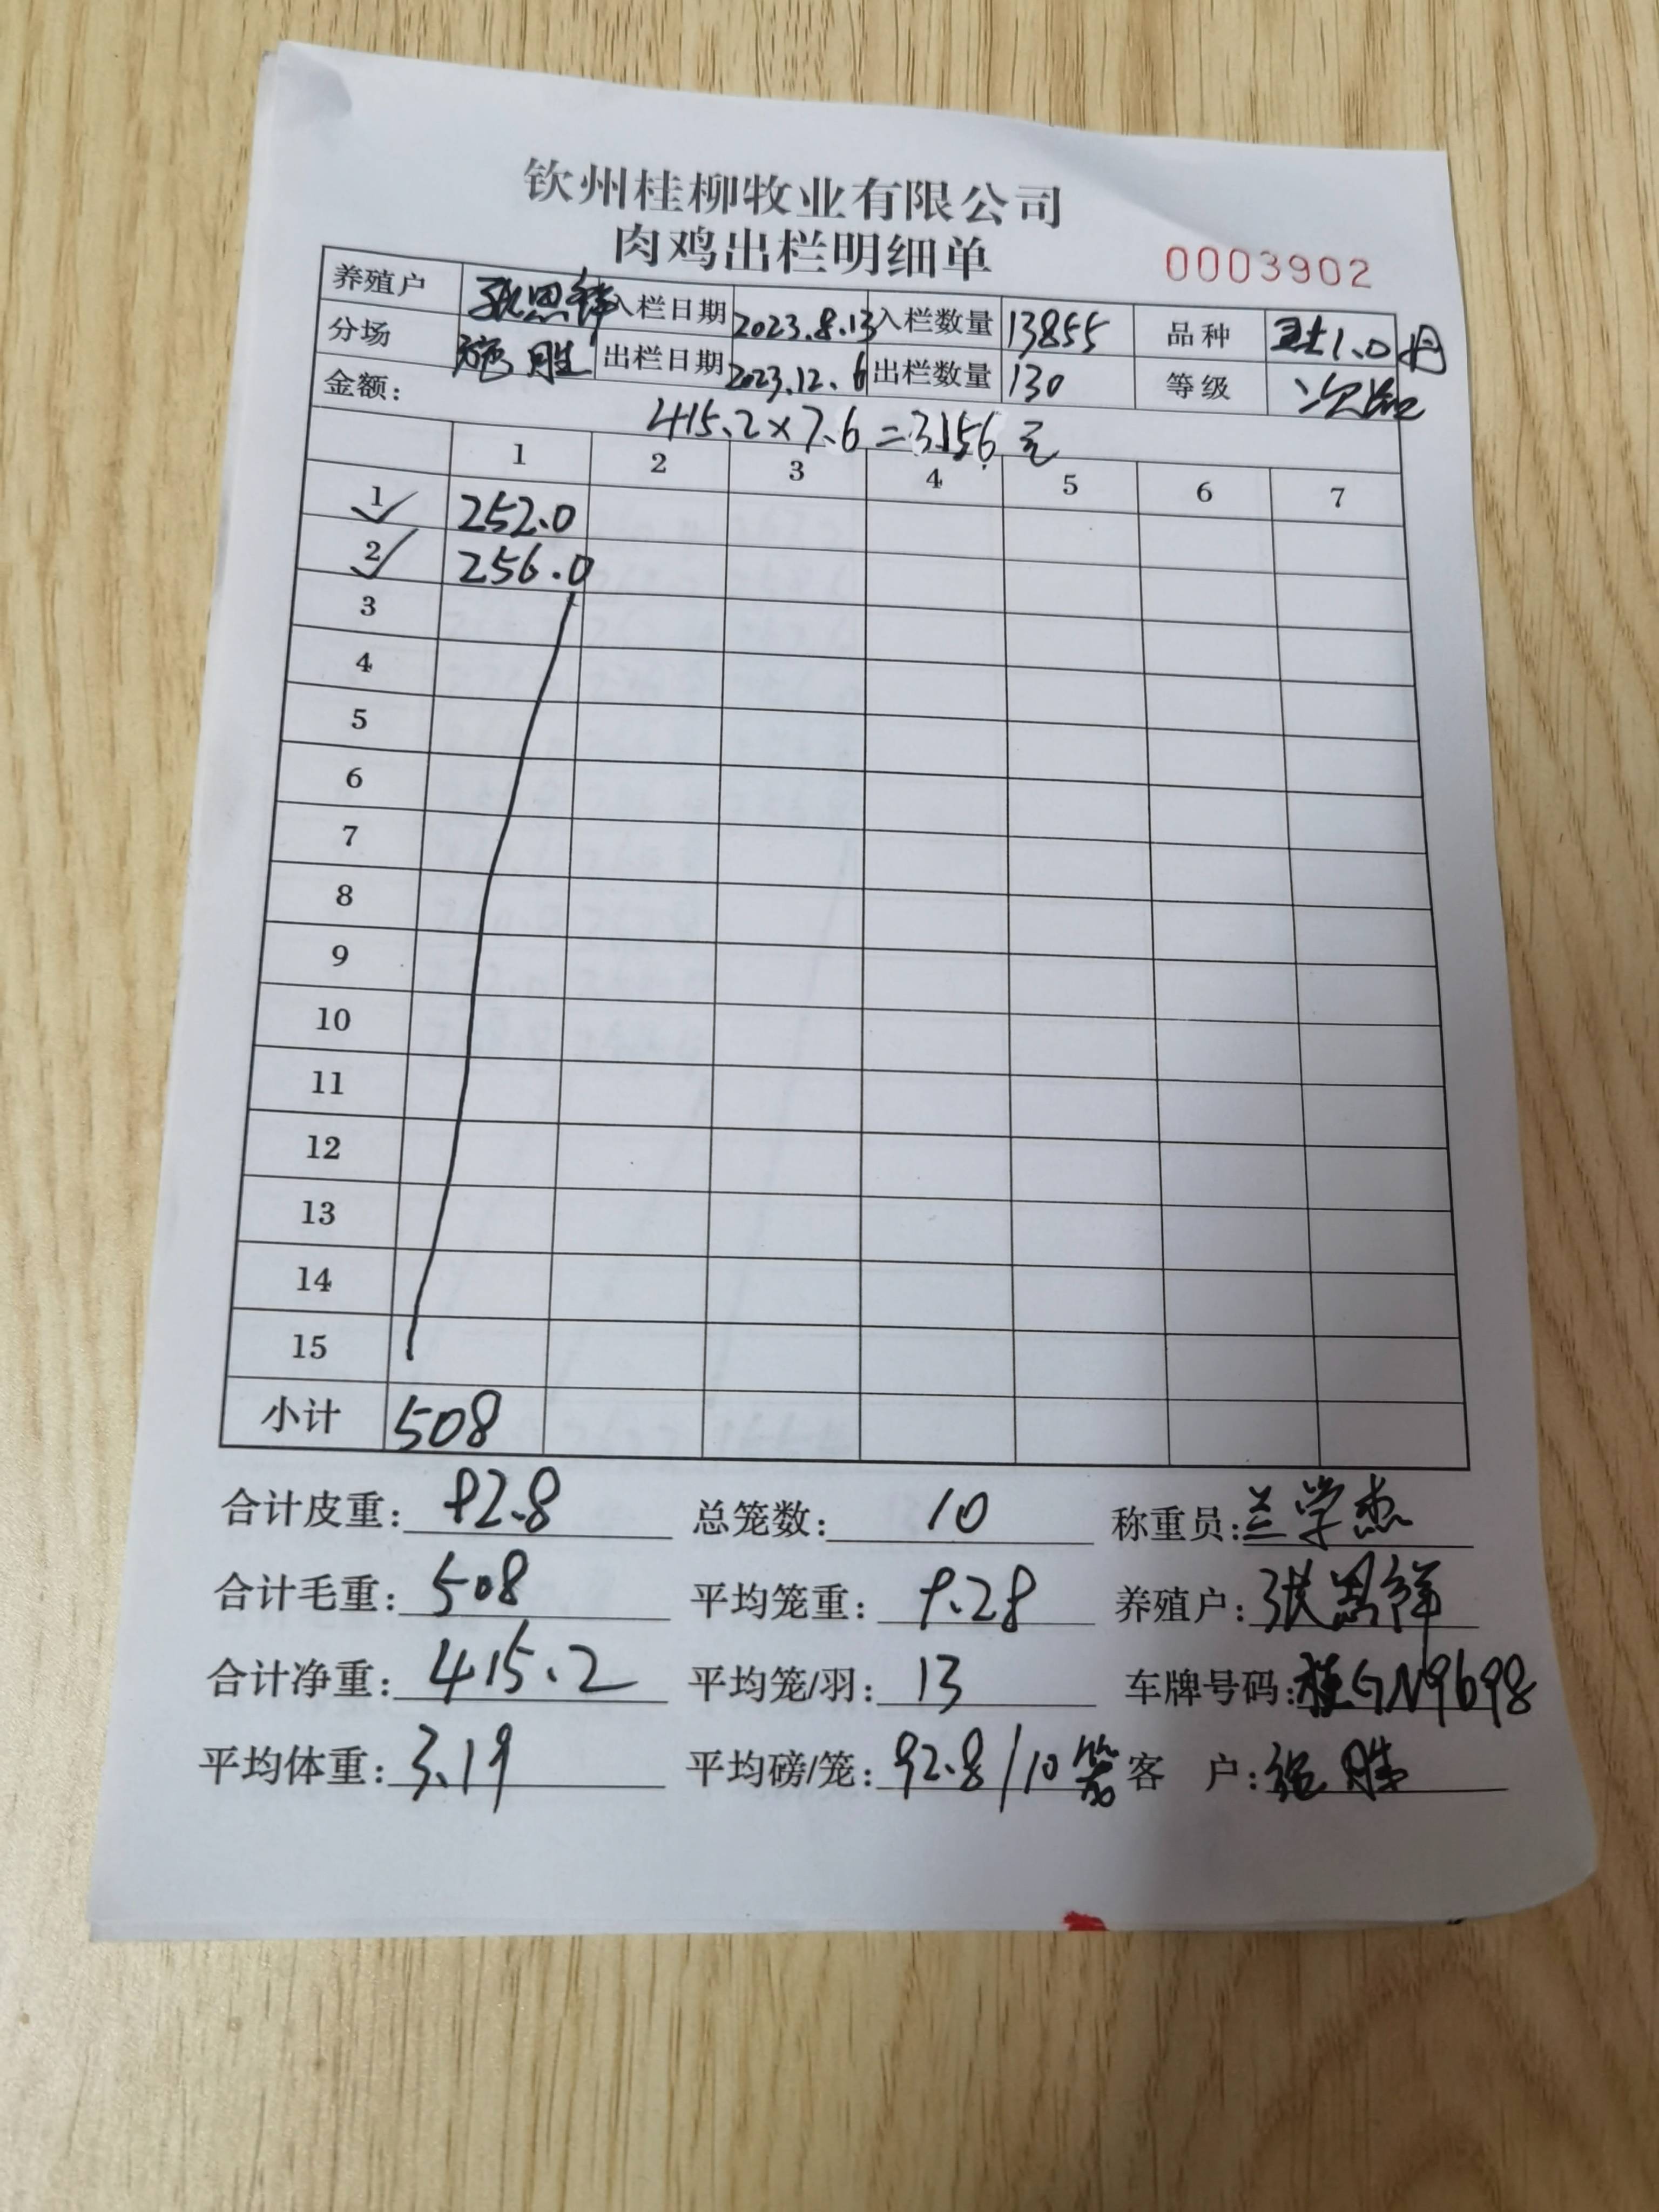 钦州桂柳牧业有限公司
肉鸡出栏明细单 0003902
养殖户 张思祥 入栏日期 2023.8.13 入栏数量 13855 品种 土1.0
分场 胜 出栏日期 2023.12.6 出栏数量 130 等级 次品
金额: 415.2×7.6=3156元
1 2 3 4 5 6 7
1 252.0
2 256.0
3
4
5
6
7
8
9
10
11
12
13
14
15
小计 508
合计皮重: 92.8 总笼数: 10 称重员: 兰学杰
合计毛重: 508 平均笼重: 9.28 养殖户: 张思祥
合计净重: 415.2 平均笼/羽: 13 车牌号码: 桂GN9698
平均体重: 3.19 平均磅/笼: 92.8/10笼 客 户: 胜